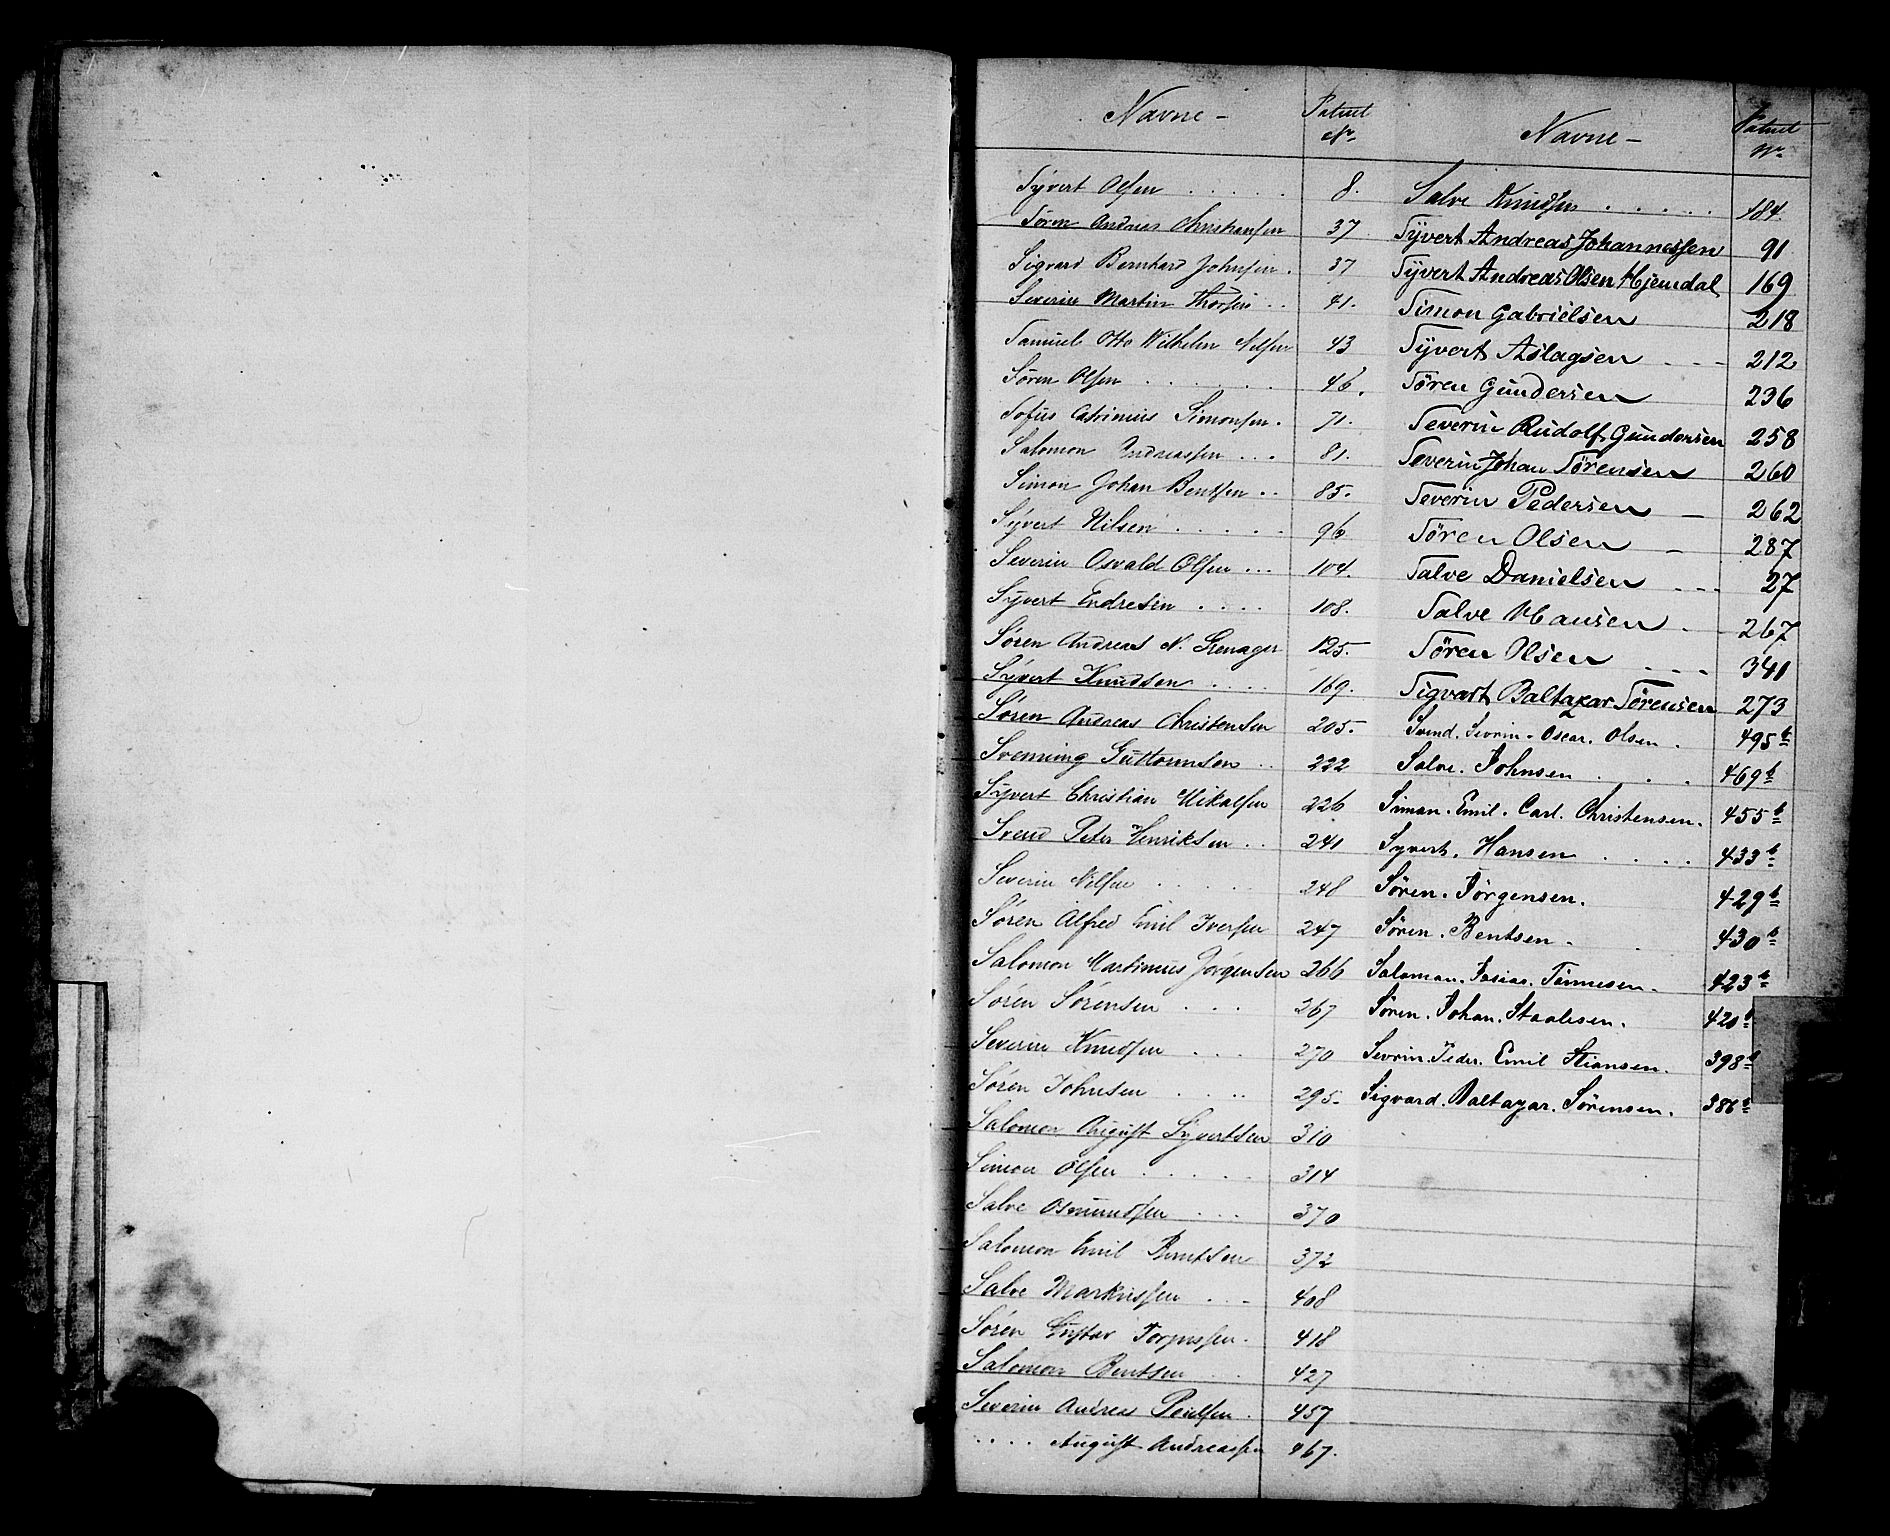 Navne -
Patent
Nr.
Syvert Olsen . . . . . 8.
Sören Andreas Christiansen 37
Sigvard Bernhard Johnsen . 37
Severin Martin Thorsen . . 41.
Samuel Otto Wilhelm Nilsen 43
Sören Olsen . . . . . . . 46.
Sofus Catrinius Simonsen . 71.
Salomon Andreassen . . . 81.
Simon Johan Bentsen . . 85.
Syvert Nilsen . . . . . 96
Severin Osvald Olsen . . . 104.
Syvert Endresen . . . . 108.
Sören Andreas N. Grenager 125.
Syvert Knudsen . . . . 169.
Sören Andreas Christensen 205.
Svenning Guttormsen . . 222
Syvert Christian Mikalsen 226
Svend Peter Henriksen . . 241
Severin Nilsen . . . . . 248
Sören Alfred Emil Iversen 247
Salomon Martinius Jörgensen 266
Sören Sörensen . . . 267
Severin Knudsen . . . 270
Sören Johnsen . . . . 295.
Salomon August Syvertsen 310
Simon Olsen . . . . . 314
Salve Osmundsen . . . 370
Salomon Emil Berntsen 372
Salve Markussen . . . 408
Sören Gustav Torjussen . 418
Salomon Bentsen . . 427
Severin Andreas Poulsen . 457
. . . . August Andreassen 467.
Navne -
Patent
Nr.
Salve Knudsen . . . . . 184
Syvert Andreas Johannessen 91
Syvert Andreas Olsen Hjemdal 169
Simon Gabrielsen 218
Syvert Aslagsen - - - 212
Sören Gundersen 236
Severin Rudolf Gundersen 258
Severin Johan Sörensen 260
Severin Pedersen - 262
Sören Olsen - 287
Salve Danielsen - - - 27
Salve Hansen - - 267
Sören Olsen - - - 341
Sigvart Baltazar Sörensen 273
Svend. Sevrin. Oscar. Olsen . 495 b
Salve. Johnsen . . . . 469 b
Siman. Emil. Carl. Christensen. 455 b
Syvert. Hansen . . . . 433 b
Sören. Jörgensen. 429 b
Sören. Bentsen. . 430 b
Saloman. Josias. Tönnesen. 423 b
Sören. Johan. Staalesen. 420 b
Sevrin. Peder. Emil Stiansen. 398 b
Sigvard. Baltazar. Sörensen. 386 b